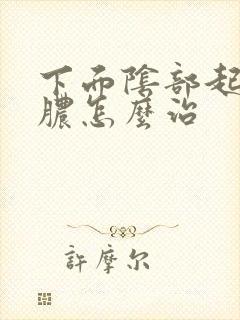 下面陰部起
膿怎麼治
許摩尔